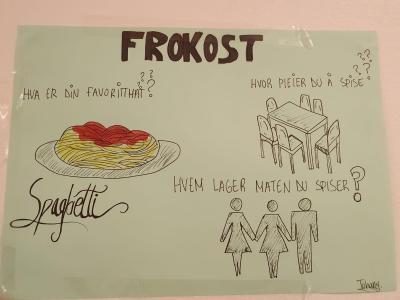 FROKOST
HVA ER DIN FAVORITTMAT???
HVOR PLEIER DU Å SPISE????
Spaghetti
HVEM LAGER MATEN DU SPISER?